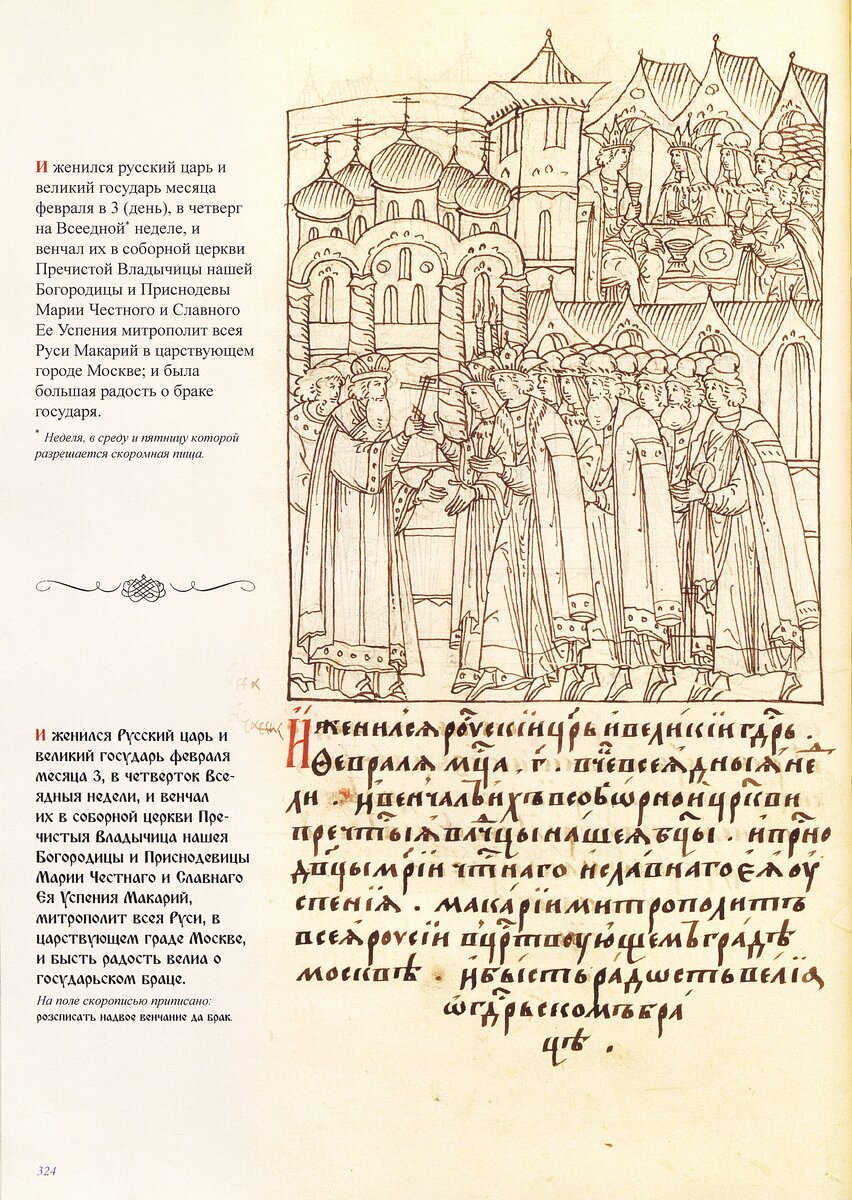 И женился русский царь и
великий государь месяца
февраля в 3 (день), в четверг
на Всеедной* неделе, и
венчал их в соборной церкви
Пречистой Владычицы нашей
Богородицы и Приснодевы
Марии Честного и Славного
Ее Успения митрополит всея
Руси Макарий в царствующем
городе Москве; и была
большая радость о браке
государя.
* Неделя, в среду и пятницу которой
разрешается скоромная пища.
И женился Русский царь и
великий государь февраля
месяца 3, в четверток Все-
ядныя недели, и венчал
их в соборной церкви Пре-
чистыя Владычица нашея
Богородицы и Приснодевицы
Марии Честнаго и Славнаго
Ея Успения Макарий,
митрополит всея Руси, в
царствующем граде Москве,
и бысть радость велиа о
государьском браце.
На поле скорописью приписано:
розсписать надвое венчание да брак.
И женилсѧ рꙋскїи цр҃ь и великїи гдр҃ь .
Ѳевралѧ мц҃а . г҃ . в че всеѧдныѧ не
ли . и венчалъ ихъ в собѡрнои цр҃кви
преч҃тыѧ влⷣчцы нашеѧ бц҃ы . и прⷭно
дв҃цы мр҃їи чт҃наго и славнаго еѧ оу
спенїѧ . макарїи митрополитъ
всеѧ роусїи в црⷭтвоующемъ градѣ
москвѣ . и бысть радѡсть велїѧ
ѡ гдр҃ьскомъ бра
цѣ .
324